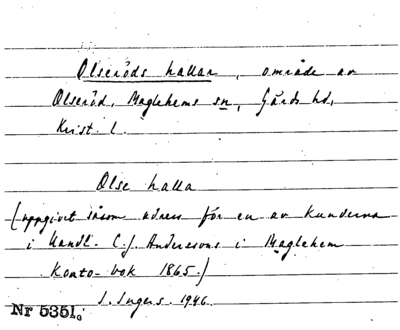 Olseröds hallar, område av
Olseröd, Maglehems sn, Gärds hd,
Krist. l.
Olse halla
(uppgivet såsom adress för en av kunderna
i Handl. C. J. Anderssons i Maglehem
Konto-bok 1865.)
S. Ingers. 1946.
Nr 5351.